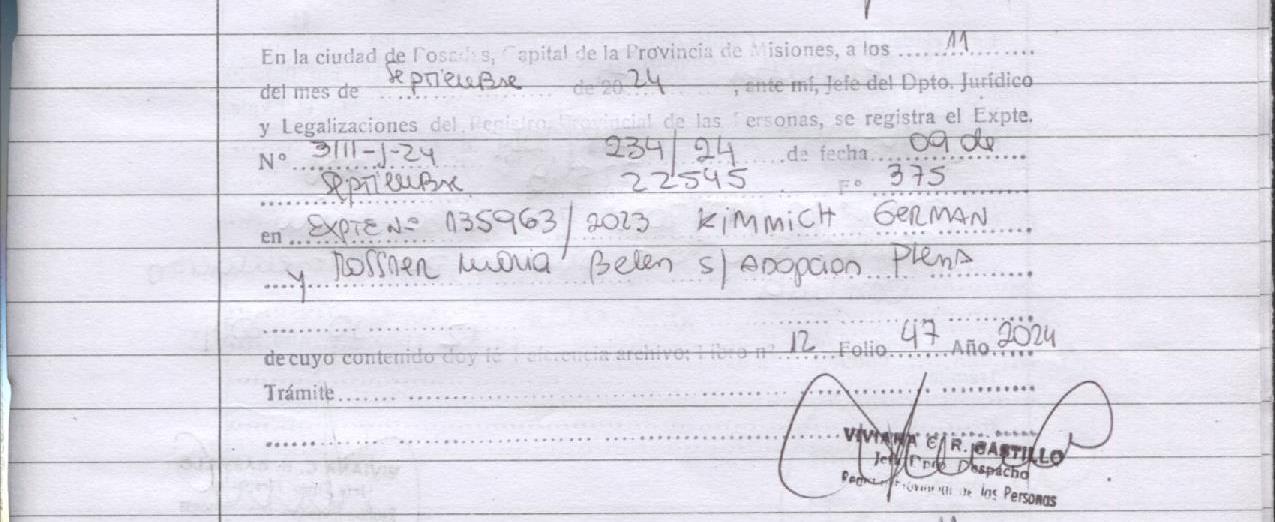 En la ciudad de Posadas, Capital de la Provincia de Misiones, a los ......11.......
del mes de ..septiembre.. de 20 24 , ante mí, Jefe del Dpto. Jurídico
y Legalizaciones del Registro Provincial de las Personas, se registra el Expte.
Nº 3111-J-24 234/24 de fecha 09 de
septiembre 22545 Fº 375
en EXPTE Nº 135963/2023 KIMMICH GERMAN
y Maria Belen s/ Adopcion Plena
de cuyo contenido doy fé Referencia archivo: Libro nº 12 Folio 47 Año 2024
Trámite
VIVIANA C. R. CASTILLO
Jefe Dpto Despacho
Registro Provincial de las Personas